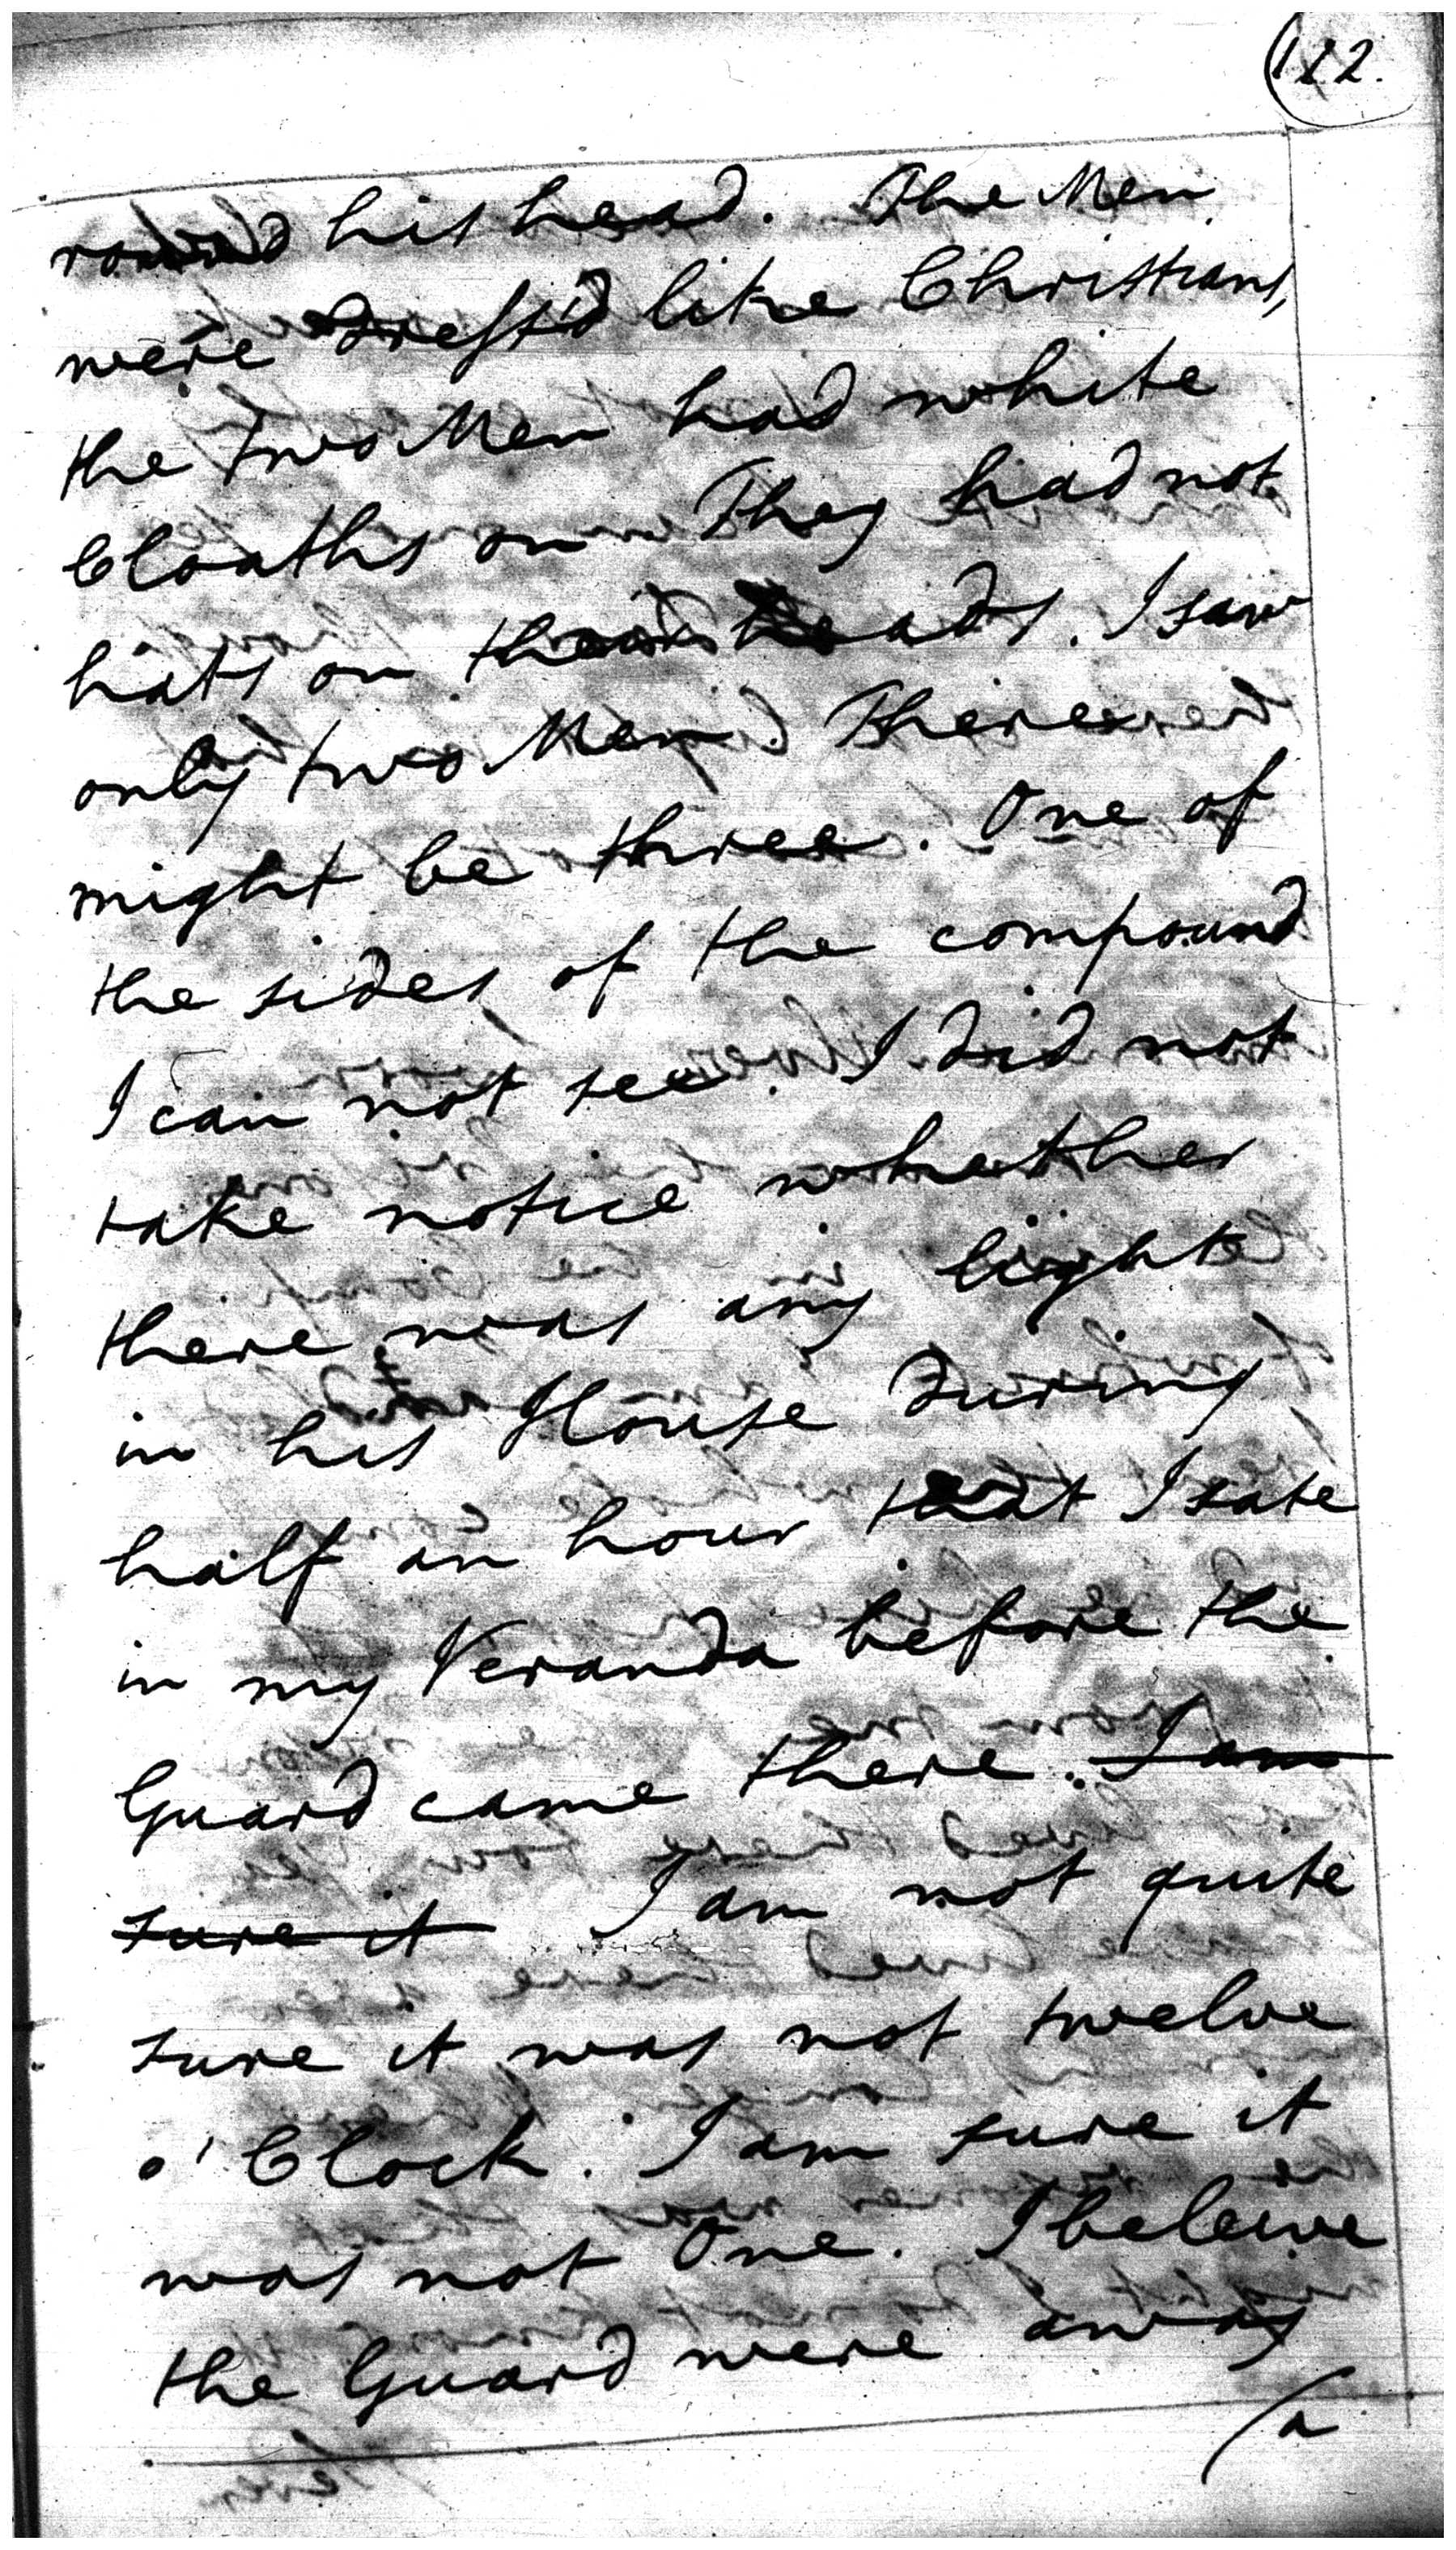 112.
round his head. The Men
were dress'd like Christians,
the two Men had white
Cloaths on They had not
hats on their heads. I saw
only two Men. There
might be three. One of
the sides of the compound
I can not see. I did not
take notice whether
there was any light
in his House during
half an hour that I sate
in my Veranda before the
Guard came there. I am
sure it I am not quite
sure it was not twelve
o'Clock. I am sure it
was not One. I beleive
the Guard were away
/a